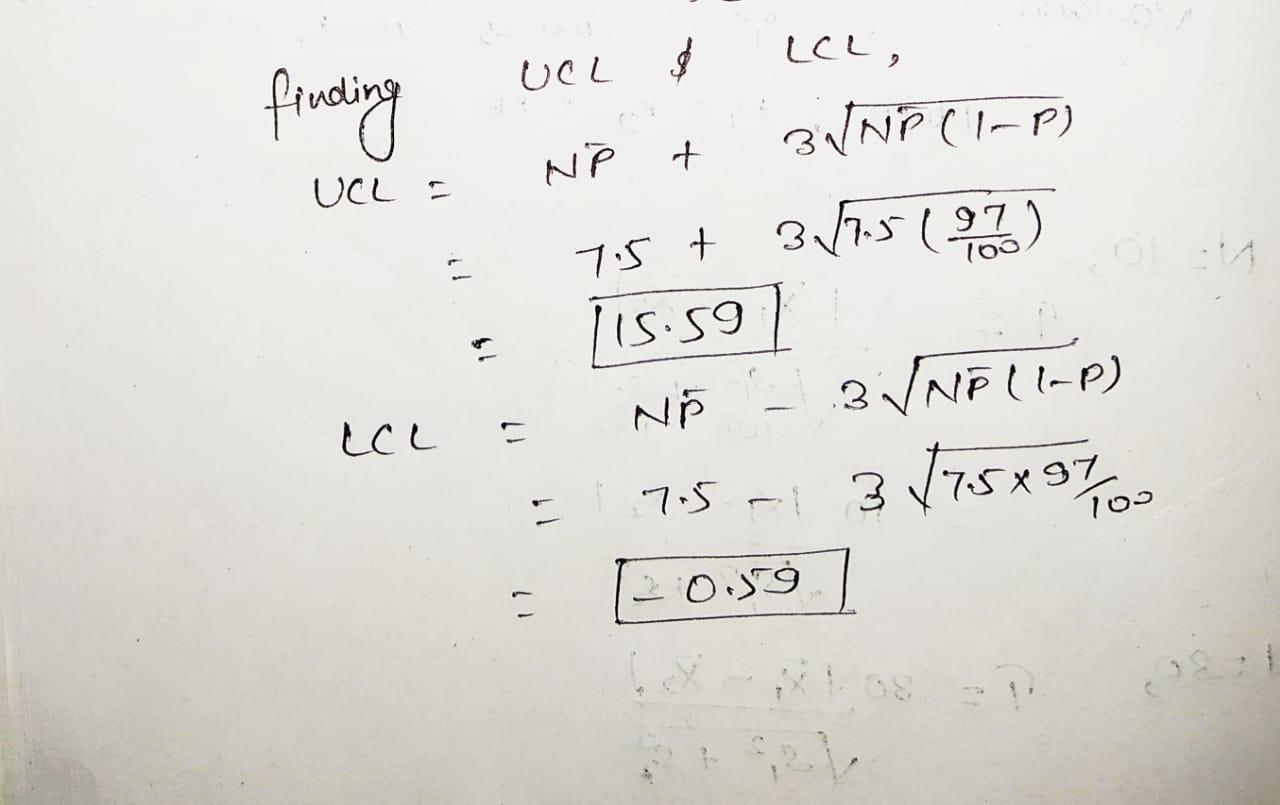 finding UCL & LCL,
UCL = NP̄ + 3√NP̄(1-P)
= 7.5 + 3√7.5(97/100)
= 15.59
LCL = NP̄ - 3√NP̄(1-P)
= 7.5 - 3√7.5×97/100
= -0.59